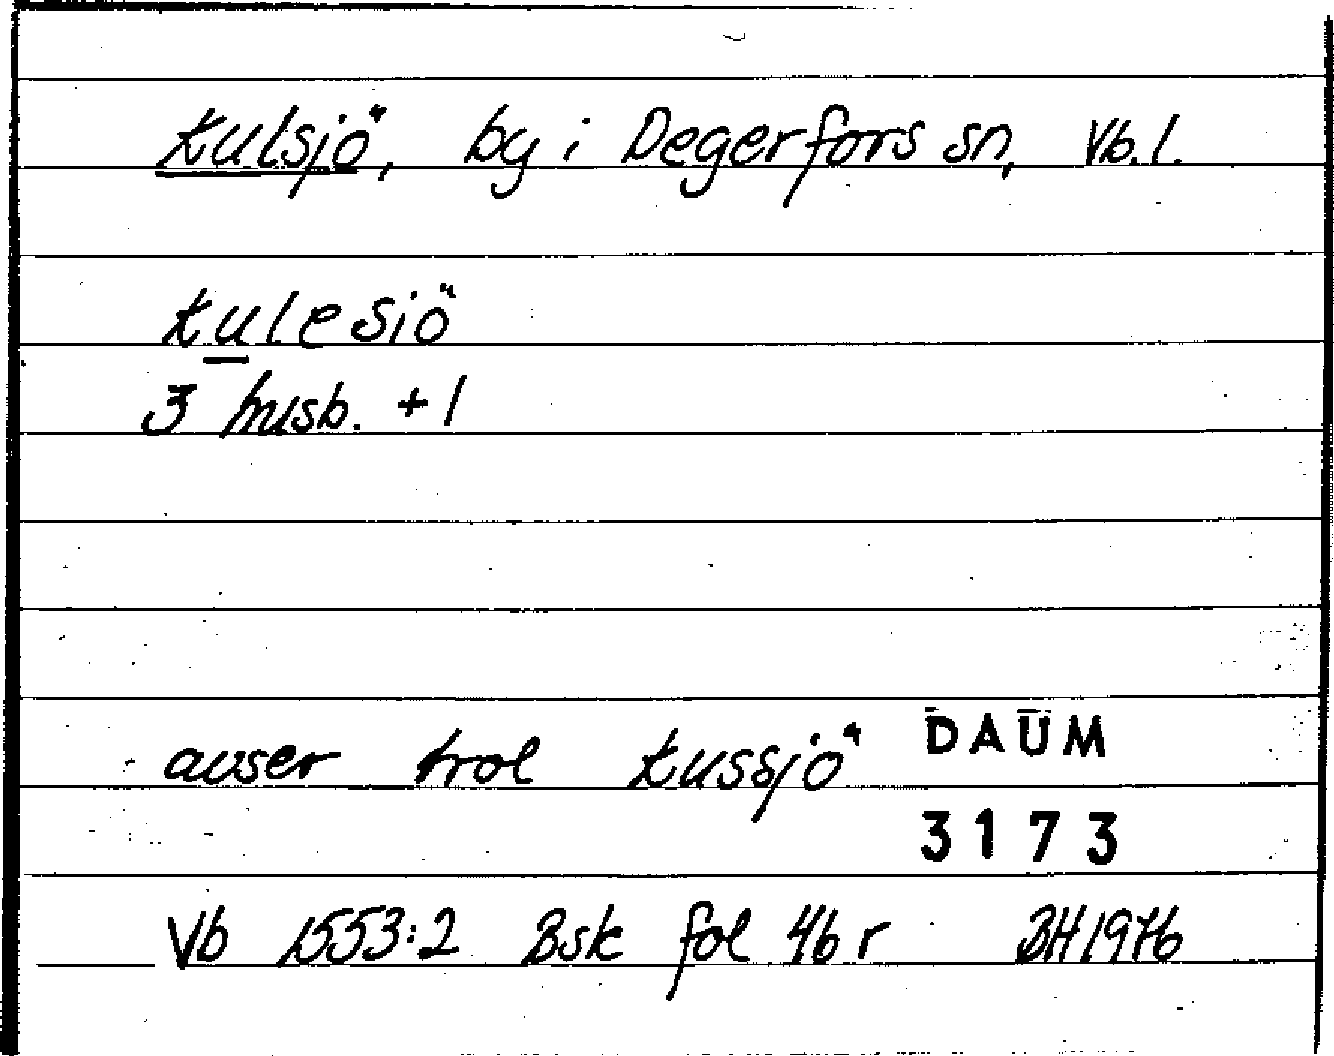 Kulsjö, by i Degerfors sn, Vb. l.
Kulesiö
3 husb. + 1
avser trol Kussjö
DAUM
3173
Vb 1553:2 Bsk fol 46 r BH 1976